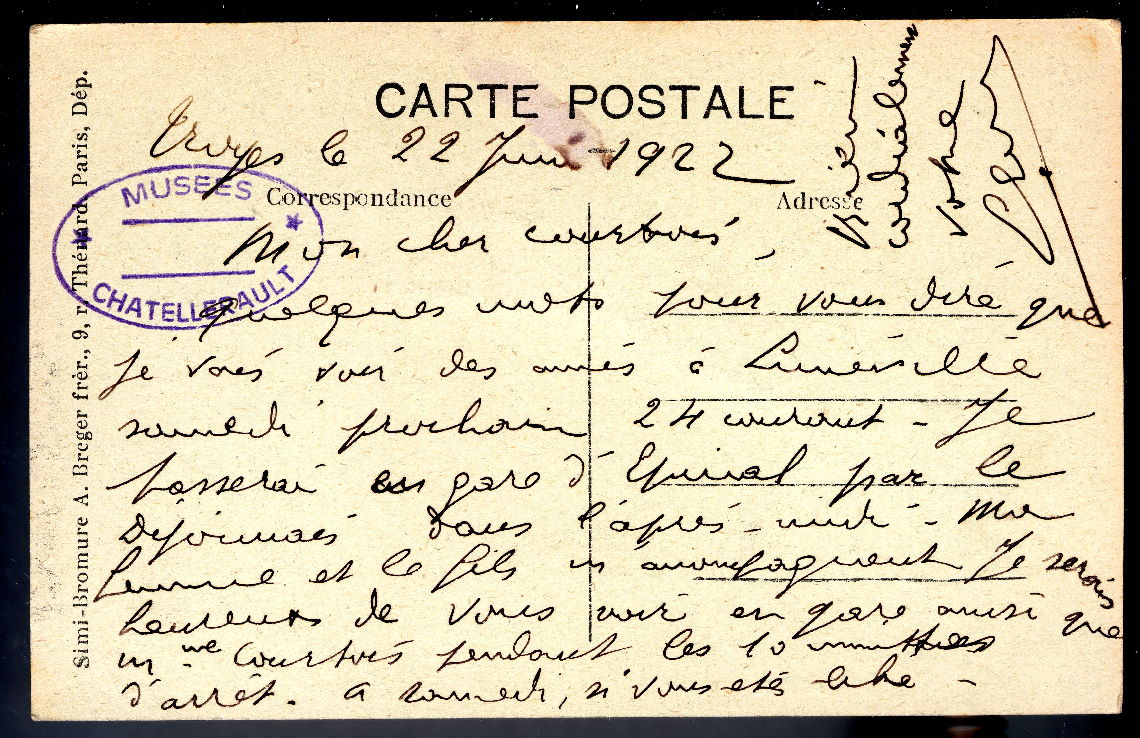 CARTE POSTALE
Troyes le 22 Juin 1922
Correspondance
Adresse
MUSEES
CHATELLERAULT
Mon cher Courtois,
quelques mots pour vous dire que
je vais voir des amis à Lunéville
samedi prochain 24 courant - Je
passerai en gare d'Epinal par le
Dijonnais dans l'après-midi - Ma
femme et le fils m'accompagnent Je serais
heureux de vous voir en gare ainsi que
Mme Courtois pendant les 10 minutes
d'arrêt. A samedi, si vous etes libre -
Bien
cordialement
votre
Simi-Bromure A. Breger frèr., 9, r. Thénard Paris, Dép.